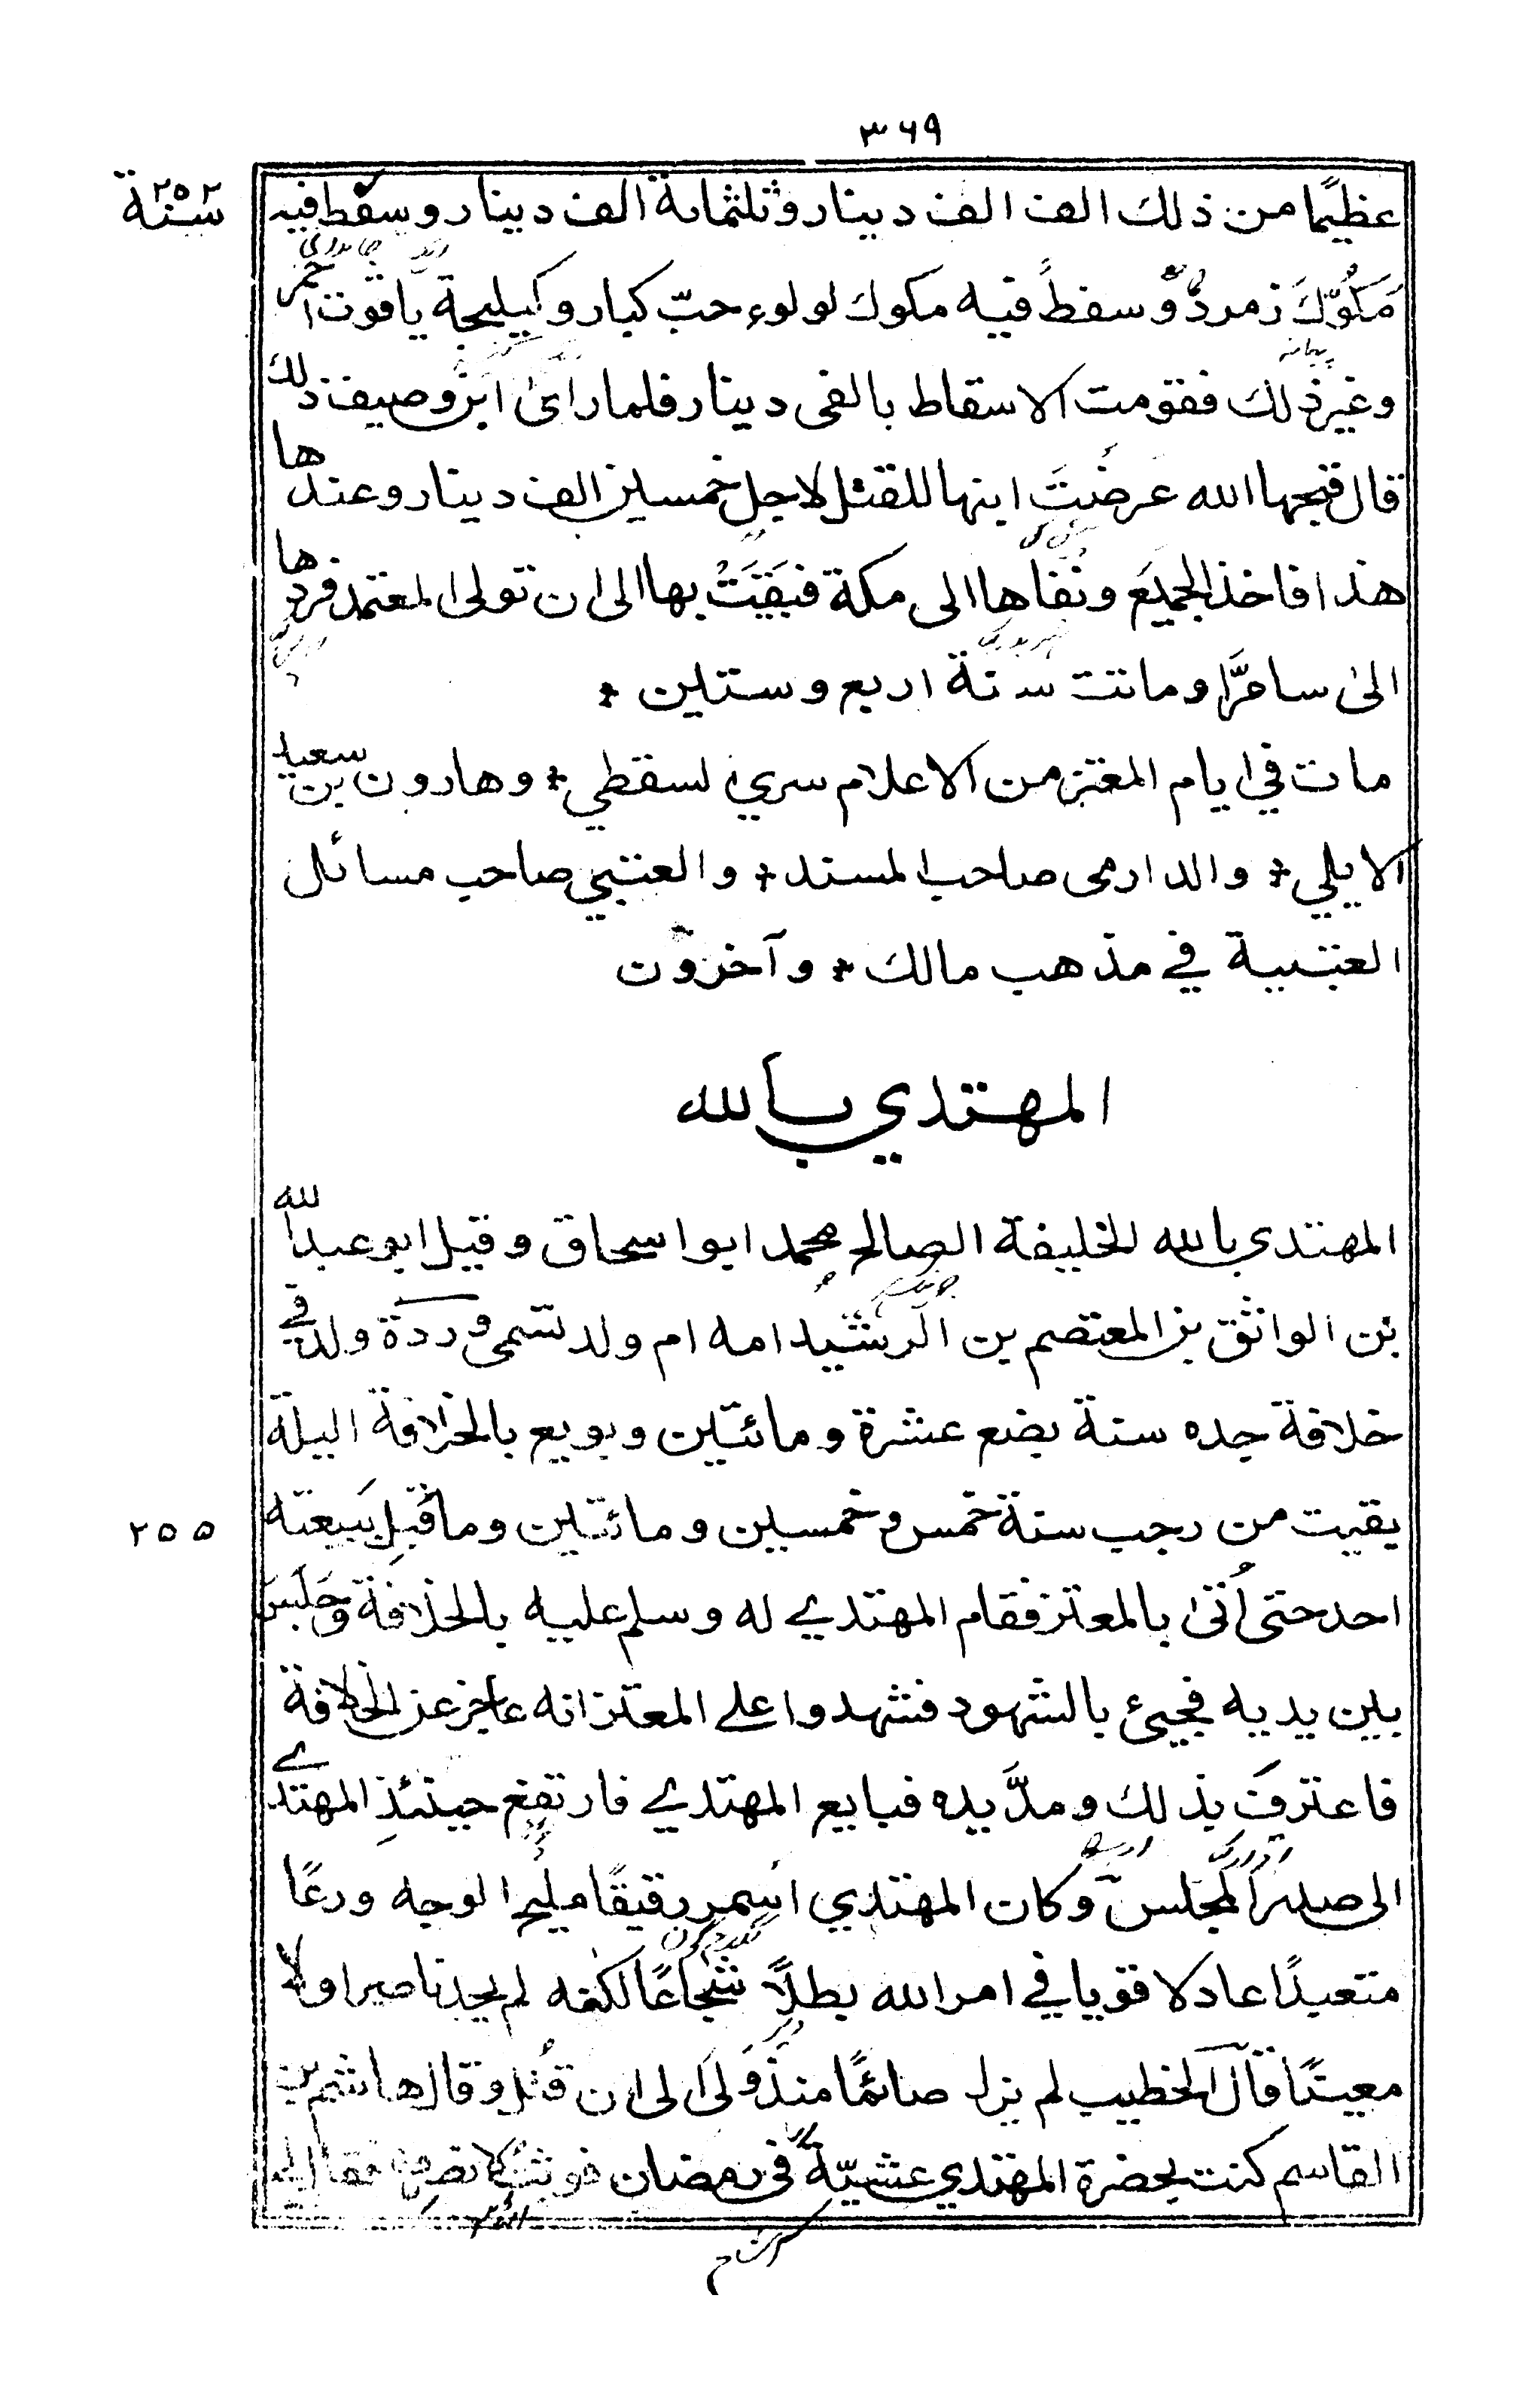 ٣٦٩
سنة ٢٥٢
عظيمًا من ذلك الف الف دينار وثلثماىة الف دينار وسفط فيه
مَكُّوكَ زمرد وسفطً فيه مكوك لولوء حبّ كبار وكيليجة ياقوت احمر
وغير ذلك فقومت الاسقاط بالفى دينار فلما راىٰ ابن وصيف ذلك
قال قبحها الله عرضت ابنها للقتل لاجل خمسين الف دينار وعندها
هذا فاخذ الجميعَ ونفاها الى مكة فبَقِيَتْ بها الى ان تولى المعتمد فردها
الىٰ سامرَّا وماتت سنة اربع وستين *
مات في ايام المعتز من الاعلام سري السقطي * وهارون بن سعيد
الايلي * والدارمى صاحب المسند * والعتبي صاحب مسائل
العتبية في مذهب مالك * وآخرون
المهتدي بالله
المهتدي بالله الخليفة الصالح محمد ابوا سحاق وقيل ابو عبد الله
بن الواثق بن المعتصم بن الرشيد امه ام ولد تسمى وردة ولد في
خلافة جده سنة بضع عشرة ومائتين وبويع بالخلافة اليلة
بقيت من رجب سنة خمس وخمسين ومائتين وما قبل بيعته
٢٥٥
احد حتى اُتىٰ بالمعتز فقام المهتدي له وسلم عليه بالخلافة وجَلَسَ
بين يديه فجيئ بالشهود فشهدوا على المعتز انه عاجز عن الخلافة
فاعترفَ بذلك ومدَّ يده فبايع المهتدي فارتفع حينئذٍ المهتدي
الى صدر المجلس وكان المهتدي اسمر رقيقًا مليح الوجه ورعًا
متعبدًا عادلا قويا في امر الله بطلًا شجاعًا لكنه لم يجد ناصرا ولا
معينًا قال الخطيب لم يزل صائمًا منذ ولىَ الى ان قُتل وقال هاشم بن
القاسم كنت بحضرة المهتدي عشيّة فى رمضان فوثبت لانصرف فقال لي